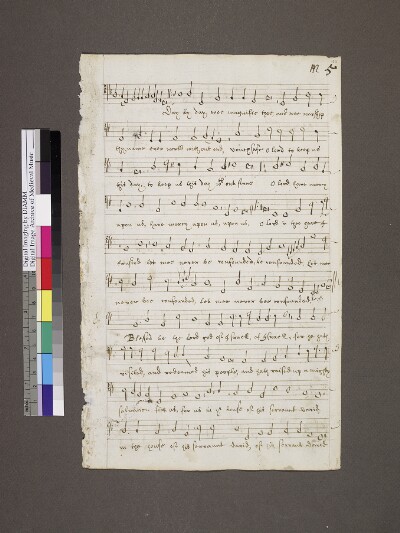 5
Day by day, wee magnifie thee and wee worship
thy name ever world without end, vouchsafe O lord to keep us
this day, to keep us this day without sinne O lord have mercy
upon us, have mercy upon us, upon us, O lord in thee have I
trusted let mee never be confounded, be confounded, Let mee
never bee confounded, Let mee never bee confounded
Blessed be the lord god of Israell, of Israell, for he hath
visited, and redeemed his people, and hath raised up a mighty
salvation for us, for us in the house of his servant David,
in the house of his servant david, of his servant David
Digital Imaging by DIAMM
Digital Image Archive of Medieval Music